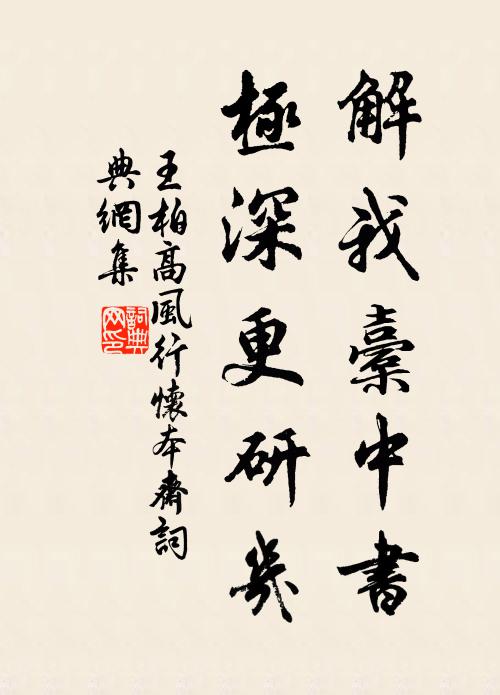 解我橐中書
極深更研幾
王柏高風行懷本齋詞
典網集
詞典網印